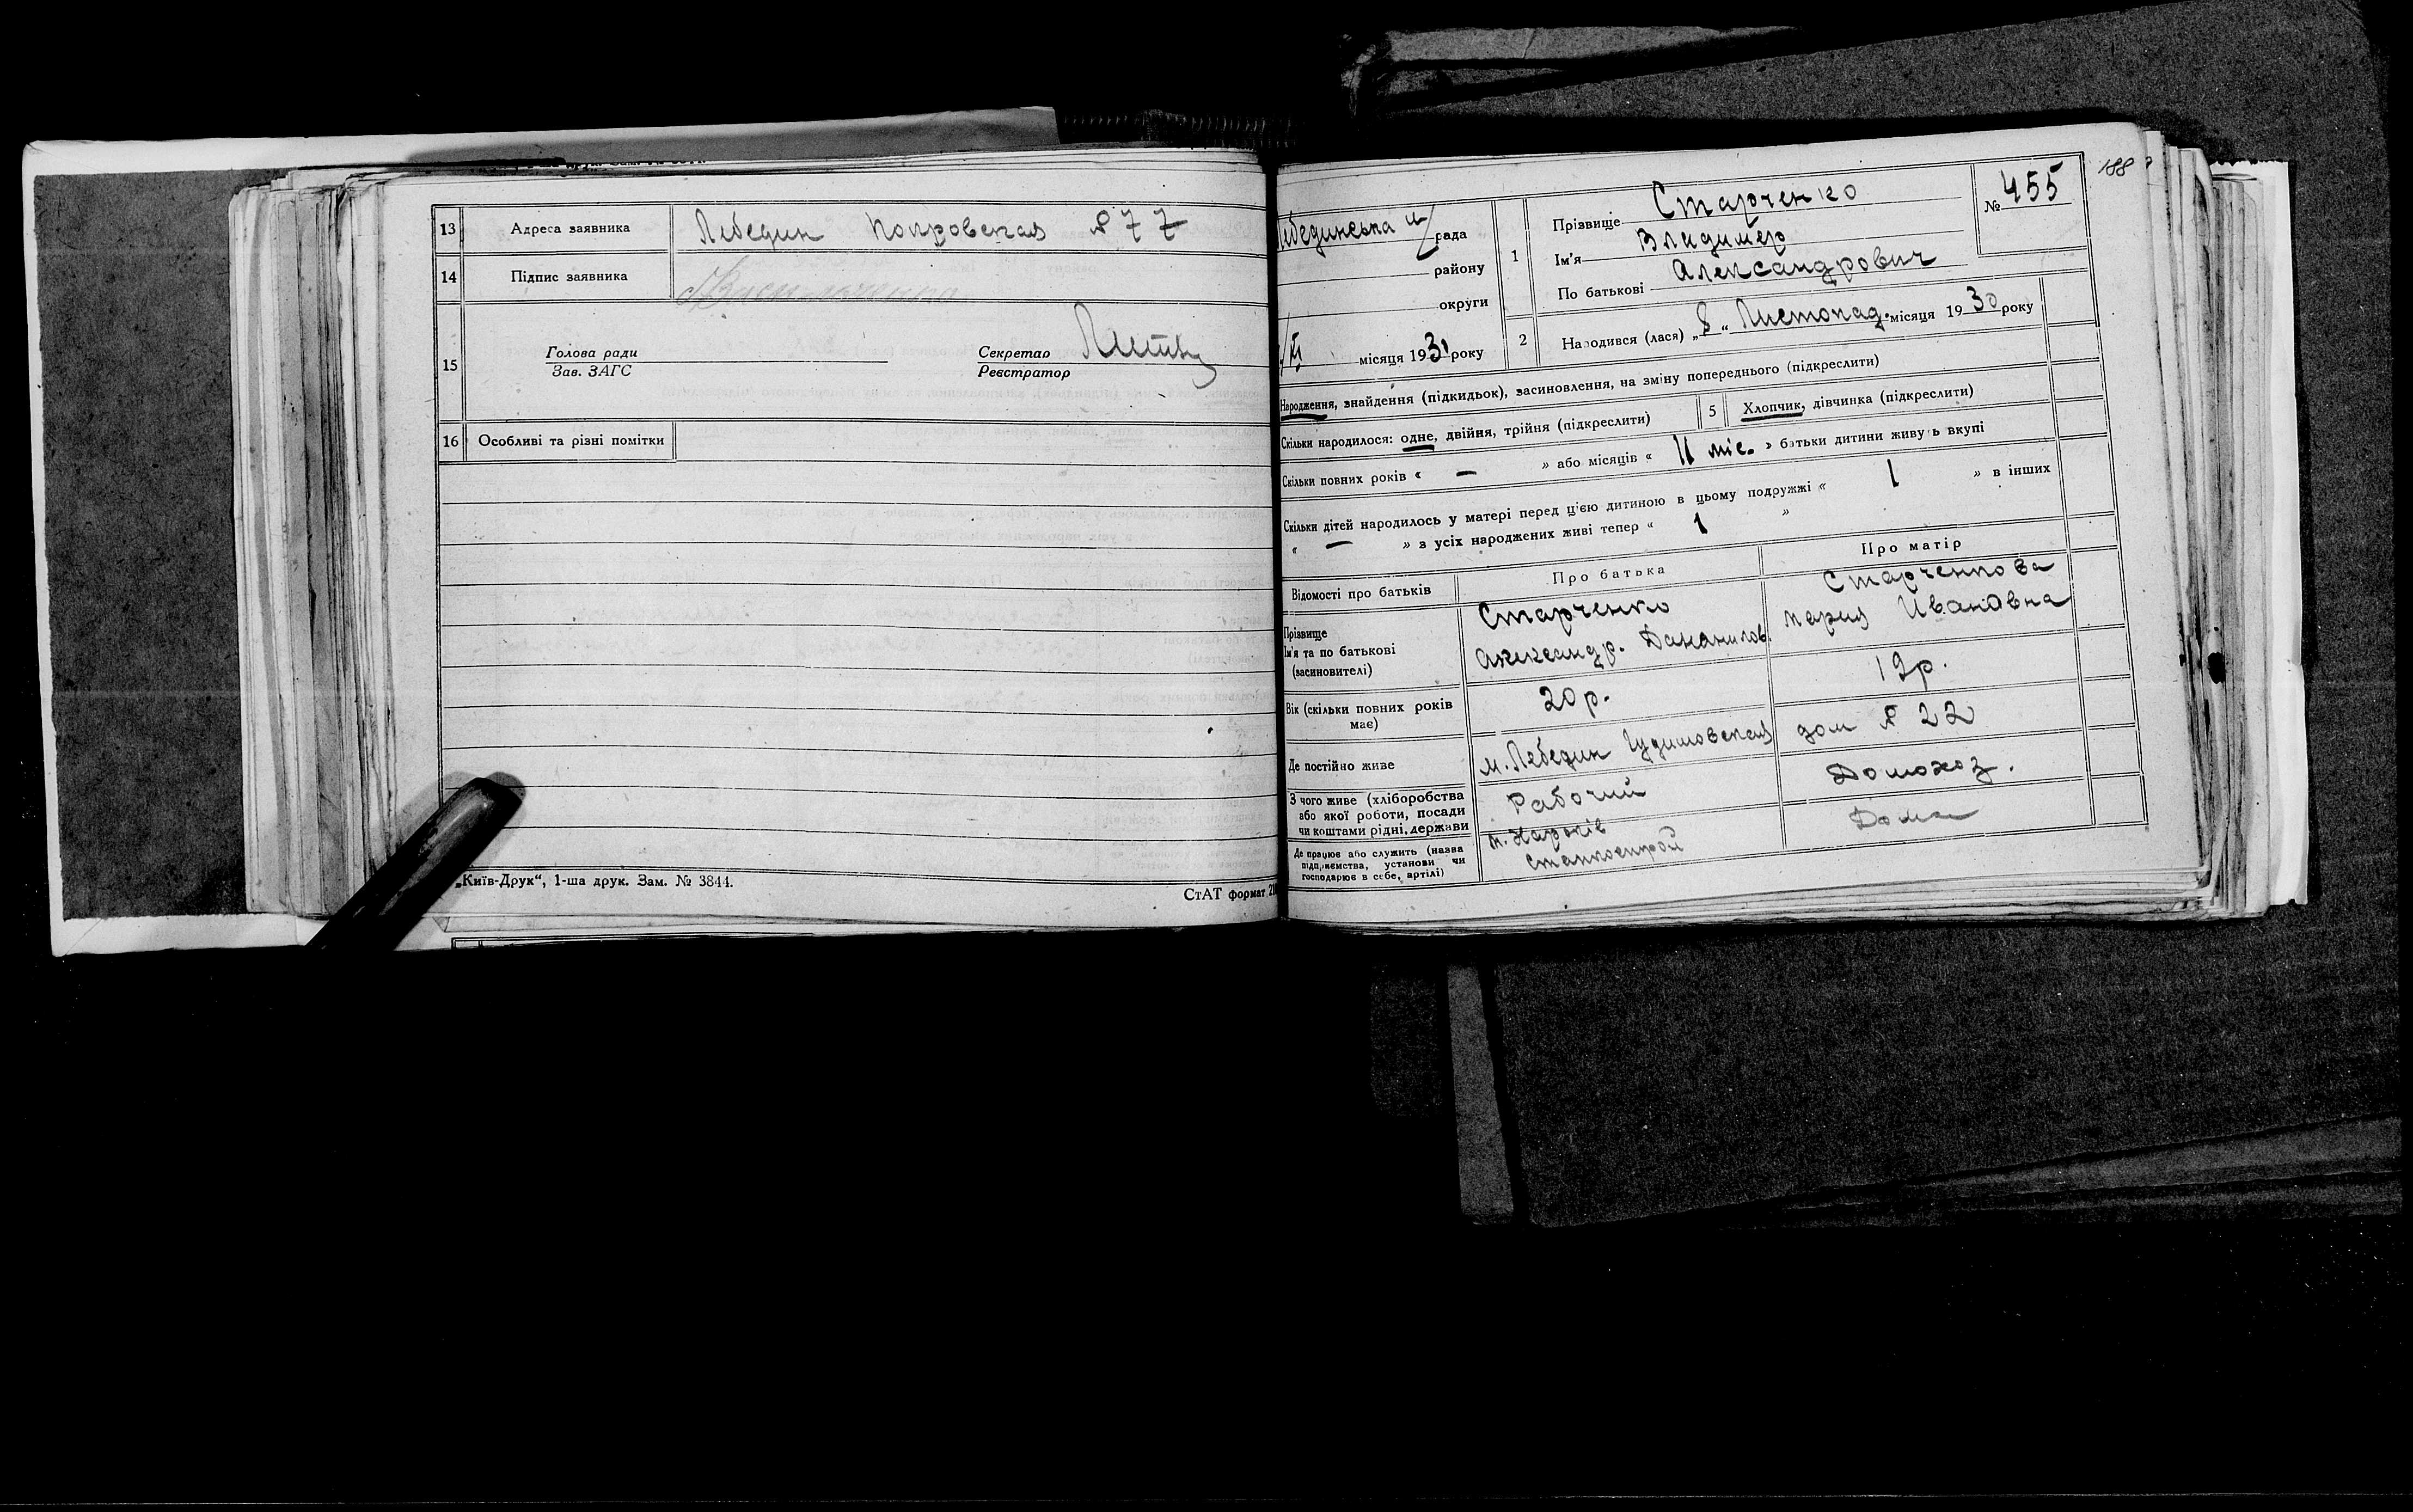 13 Адреса заявника Лебедин Покровская № 77
14 Підпис заявника
15 Голова ради Секретар
Зав. ЗАГС Реєстратор
16 Особливі та різні помітки
„Київ-Друк“, 1-ша друк. Зам. № 3844.
СтАТ формат
188
№ 455
Лебединська рада
району
округи
місяця 1931 року
1 Прізвище Старченко
Ім'я Владимер
По батькові Александрович
2 Народився (лася) „8„ Листопад. місяця 1930 року
Народження, знайдення (підкидьок), засиновлення, на зміну попереднього (підкреслити)
Скільки народилося: одне, двійня, трійня (підкреслити) 5 Хлопчик, дівчинка (підкреслити)
Скільки повних років « — » або місяців « 11 міс. » батьки дитини живуть вкупі
Скільки дітей народилось у матері перед цією дитиною в цьому подружжі « 1 » в інших
« — » з усіх народжених живі тепер « 1 »
Відомості про батьків Про батька Про матір
Прізвище
Ім'я та по батькові
(засиновителі)
Старченко
Александр.
Старченкова
Мария Ивановна
Вік (скільки повних років
має)
20 р. 19 р.
Де постійно живе м. Лебедин Гудимовская дом № 22
З чого живе (хліборобства
або якої роботи, посади
чи коштами рідні, держави
Рабочий Домохоз.
Де працює або служить (назва
підприємства, установи чи
господарює в себе, артілі)
м. Харків
Станкострой
Дома